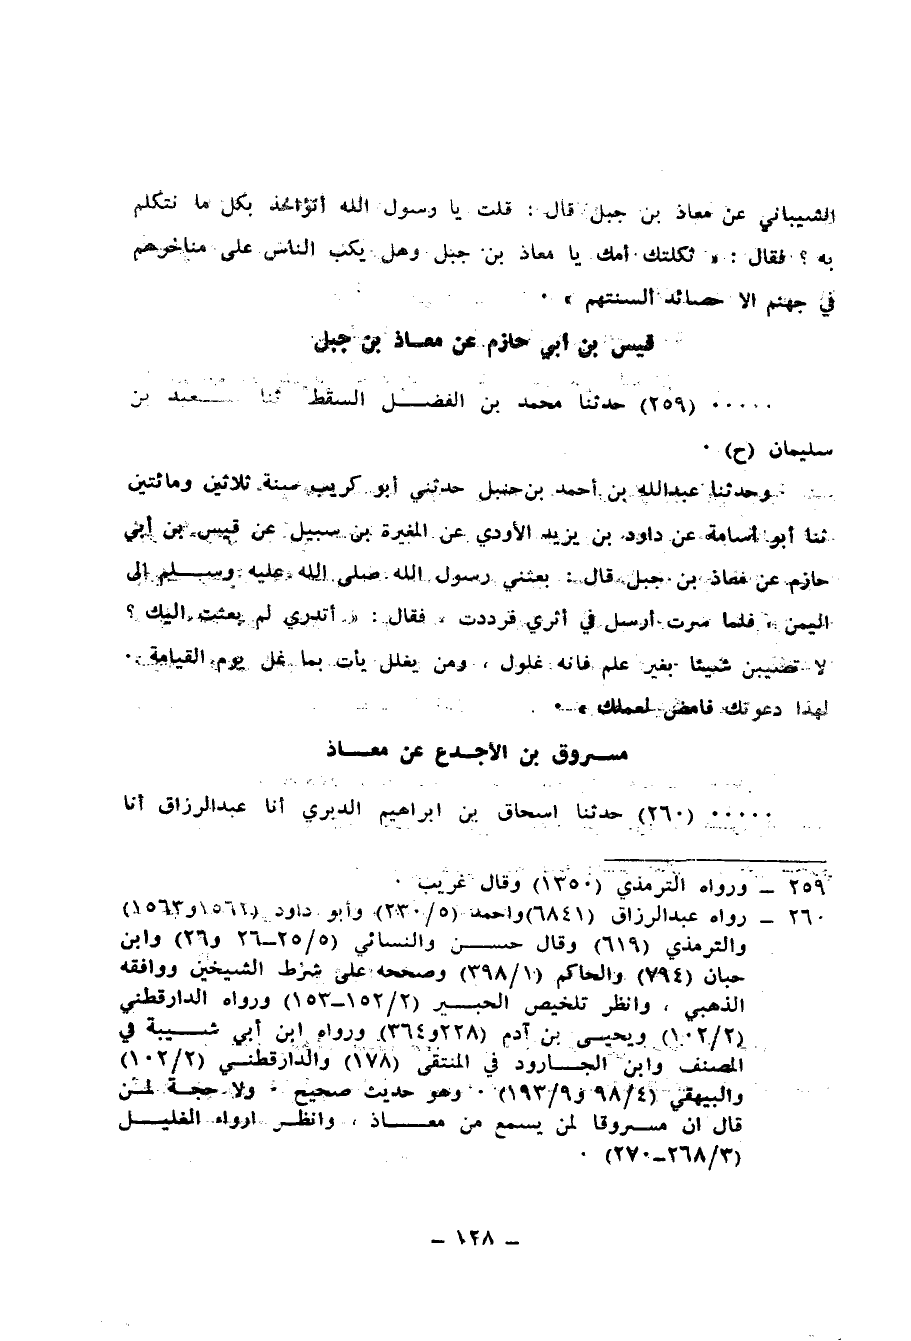 الشيباني عن معاذ بن جبل قال : قلت يا رسول الله أنؤاخذ بكل ما نتكلم
به ؟ فقال : « ثكلتك أمك يا معاذ بن جبل وهل يكب الناس على مناخرهم
في جهنم الا حصائد ألسنتهم » ٠
قيس بن أبي حازم عن معاذ بن جبل
٠٠٠٠٠ (٢٥٩) حدثنا محمد بن الفضل السقطي ثنا سعيد بن
سليمان (ح) ٠
وحدثنا عبدالله بن أحمد بن حنبل حدثني أبو كريب سنة ثلاثين ومائتين
ثنا أبو أسامة عن داود بن يزيد الأودي عن المغيرة بن سبيل عن قيس بن أبي
حازم عن معاذ بن جبل قال : بعثني رسول الله صلى الله عليه وسلم الى
اليمن ، فلما سرت أرسل في أثري فرددت ، فقال : « أتدري لم بعثت اليك ؟
لا تصيبن شيئا بغير علم فانه غلول ، ومن يغلل يأت بما غل يوم القيامة ٠
لهذا دعوتك فامض لعملك » ٠
مسروق بن الأجدع عن معاذ
٠٠٠٠٠ (٢٦٠) حدثنا اسحاق بن ابراهيم الدبري أنا عبدالرزاق أنا
٢٥٩ ــ ورواه الترمذي (١٣٥٠) وقال غريب ٠
٢٦٠ ــ رواه عبدالرزاق (٦٨٤١) واحمد (٢٣٠/٥) وأبو داود (١٥٦١و١٥٦٣)
والترمذي (٦١٩) وقال حسن والنسائي (٢٥/٥ــ٢٦ و٢٦) وابن
حبان (٧٩٤) والحاكم (٣٩٨/١) وصححه على شرط الشيخين ووافقه
الذهبي ، وانظر تلخيص الحبير (١٥٢/٢ــ١٥٣) ورواه الدارقطني
(١٠٢/٢) ويحيى بن آدم (٢٢٨و٣٦٤) ورواه ابن أبي شيبة في
المصنف وابن الجارود في المنتقى (١٧٨) والدارقطني (١٠٢/٢)
والبيهقي (٩٨/٤ و١٩٣/٩) ٠ وهو حديث صحيح ٠ ولا حجة لمن
قال ان مسروقا لمن يسمع من معاذ ، وانظر ارواء الغليل
(٢٦٨/٣ــ٢٧٠) ٠
ــ ١٢٨ ــ